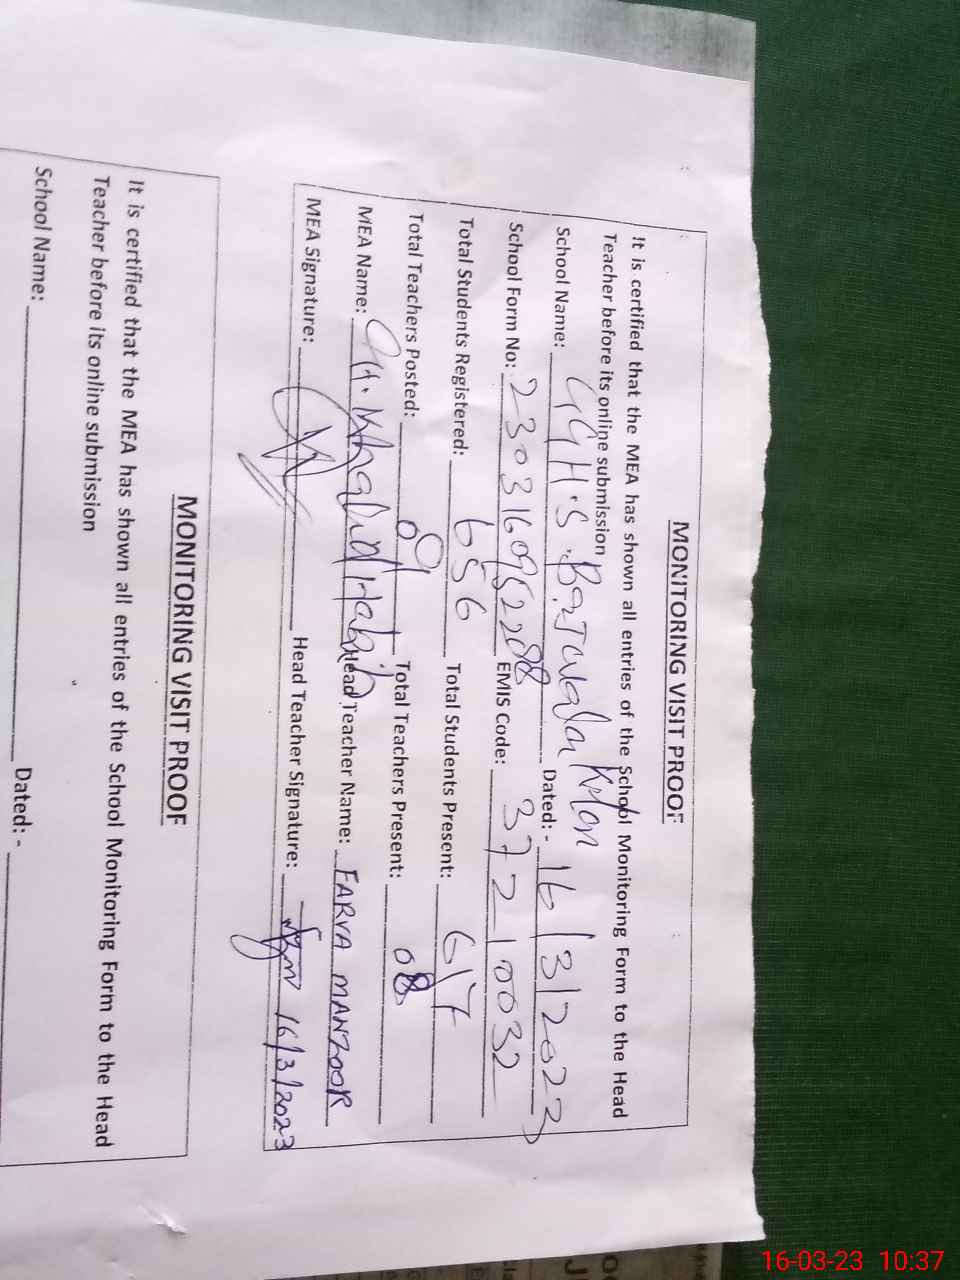 MONITORING VISIT PROOF
It is certified that the MEA has shown all entries of the School Monitoring Form to the Head
Teacher before its online submission
School Name: GGH.S. Dated: - 16/3/2023
School Form No: 23031609S2208 EMIS Code: 37210032
Total Students Registered: 656 Total Students Present: 617
Total Teachers Posted: 09 Total Teachers Present: 08
MEA Name: Ch. Khalid Head Teacher Name: FARVA MANZOOR
MEA Signature: Head Teacher Signature: 16/3/2023
MONITORING VISIT PROOF
It is certified that the MEA has shown all entries of the School Monitoring Form to the Head
Teacher before its online submission
School Name: Dated: -
16-03-23 10:37